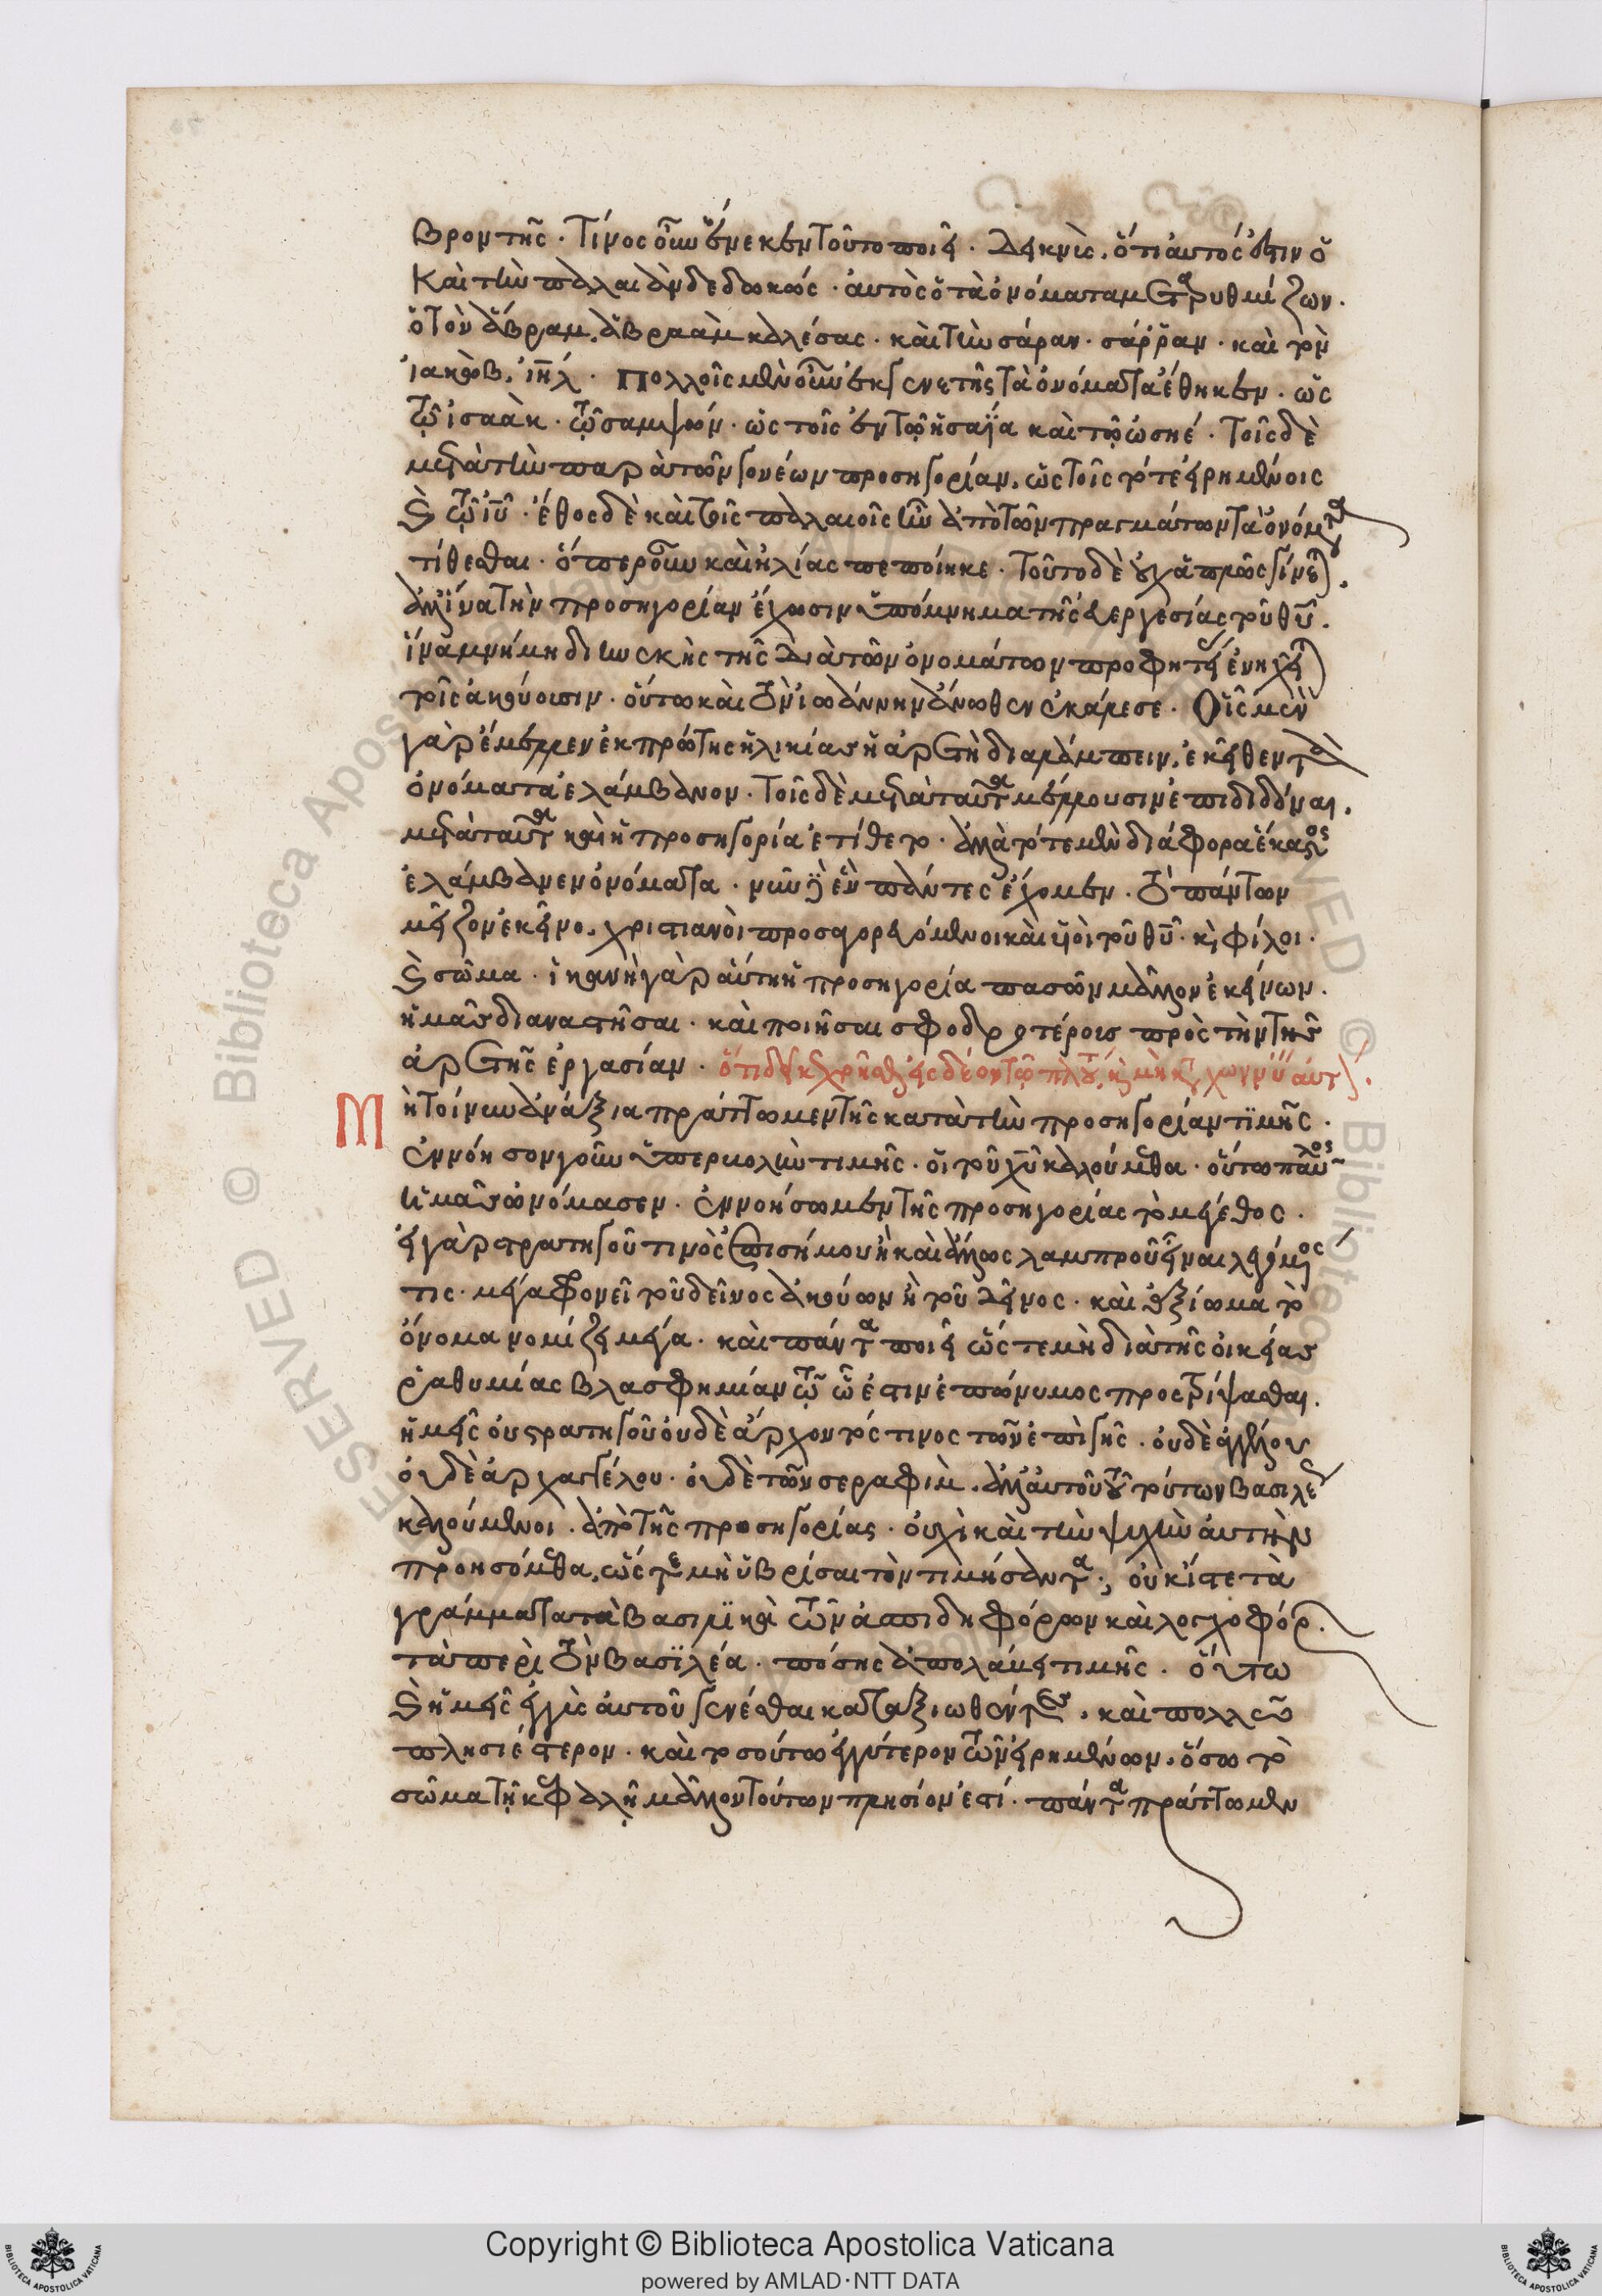 βροντῆς. Τίνος οὖν ἕνεκεν τοῦτο ποιεῖ. Δεικνὺς, ὅτι αὐτός ἐστιν ὁ
καὶ τὴν παλαιὰν δεδωκώς. αὐτὸς ὁ τὰ ὀνόματα μεταρυθμίζων.
ὁ τὸν ἄβραμ, ἀβραὰμ καλέσας. καὶ τὴν σάραν. σάρραν. καὶ τὸν
ἰακὼβ, ιηλ. Πολλοῖς μὲν οὖν ἐκ γενετῆς τὰ ὀνόματα ἔθηκεν. ὡς
τῷ ἰσαὰκ. τῷ σαμψών. ὡς τοῖς ἐν τῷ ἠσαΐα καὶ τῷ ὠσηέ. Τοῖς δὲ
μετὰ τὴν παρὰ τῶν γονέων προσηγορίαν. ὡς τοῖς τότε εἰρημένοις
καὶ τῷ ιυ. ἔθος δὲ καὶ τοῖς παλαιοῖς ἦν ἀπὸ τῶν πραγμάτων τὰ ὀνόματα
τίθεσθαι. ὅπερ οὖν καὶ ἠλίας πεποίηκε. Τοῦτο δὲ οὐχ ἁπλῶς γίνεται.
ἀλλ' ἵνα τὴν προσηγορίαν ἔχωσιν ὑπόμνημα τῆς εὐεργεσίας τοῦ θυ.
ἵνα μνήμη διηνεκὴς τῆς διὰ τῶν ὀνομάτων προφητείας ἐνηχεῖται
τοῖς ἀκούουσιν. οὕτω καὶ τὸν ἰωάννην ἄνωθεν ἐκάλεσε. Οἷς μὲν
γὰρ ἔμελλεν ἐκ πρώτης ἡλικίας ἡ ἀρετὴ διαλάμπειν. ἐκεῖθεν τὰ
ὀνόματα ἐλάμβανον. Τοῖς δὲ μετὰ ταῦτα μέλλουσιν ἐπιδιδόναι.
μετὰ ταῦτα καὶ ἡ προσηγορία ἐτίθετο. ἀλλὰ τότε μὲν διάφορα ἕκαστος
ἐλάμβανεν ὀνόματα. νῦν δὲ ἓν πάντες ἔχομεν. τὸ πάντων
μεῖζον ἐκεῖνο. χριστιανοὶ προσαγορευόμενοι καὶ υἱοὶ τοῦ θυ. καὶ φίλοι.
καὶ σῶμα. ἱκανὴ γὰρ αὕτη ἡ προσηγορία πασῶν μᾶλλον ἐκείνων.
ἡμᾶς διαναστῆσαι. καὶ ποιῆσαι σφοδροτέροις πρὸς τὴν τῆς
ἀρετῆς ἐργασίαν.
Μὴ τοίνυν ἀνάξια πράττωμεν τῆς κατὰ τὴν προσηγορίαν τιμῆς.
ἐννόησον γοῦν ὑπερβολὴν τιμῆς. οἱ τοῦ χυ καλούμεθα. οὕτω παῦλος
ἡμᾶς ὠνόμασεν. ἐννοήσωμεν τῆς προσηγορίας τὸ μέγεθος.
εἰ γὰρ στρατηγοῦ τινὸς ἐπισήμου ἢ καὶ ἄλλως λαμπροῦ εἶναι λεγόμενος
τις. μέγα φρονεῖ τοῦ δεῖνος ἀκούων ἢ τοῦ δεῖνος. καὶ ἀξίωμα τὸ
ὄνομα νομίζει μέγα. καὶ πάντα ποιεῖ ὥστε μὴ διὰ τῆς οἰκείας
ῥαθυμίας βλασφημίαν τῷ ὧ ἐστιν ἐπώνυμος προστρίψασθαι.
ἡμεῖς οὐ στρατηγοῦ οὐδὲ ἄρχοντός τινος τῶν ἐπὶ γῆς. οὐδὲ ἀγγέλου
οὐδὲ ἀρχαγγέλου. οὐδὲ τῶν σεραφὶμ. ἀλλ' αὐτοῦ τοῦ τούτων βασιλέως
καλούμενοι. ἀπὸ τῆς προσηγορίας. οὐχὶ καὶ τὴν ψυχὴν αὐτὴν
προησόμεθα. ὥστε μὴ ὑβρίσαι τὸν τιμήσαντα; οὐκ ἴστε τὰ
γράμματα τὰ βασιλικὰ τῶν ἀσπιδηφόρων καὶ λογχοφόρων.
τὰ περὶ τὸν βασιλέα. πόσης ἀπολαύει τιμῆς. οὕτω
καὶ ἡμεῖς ἐγγὺς αὐτοῦ γενέσθαι καταξιωθέντες. καὶ πολλῷ
πλησιέστερον. καὶ τοσούτω ἐγγύτερον τῶν εἰρημένων. ὅσω τὸ
σῶμα τῇ κεφαλῇ μᾶλλον τούτων πλησίον ἐστί. πάντα πράττωμεν